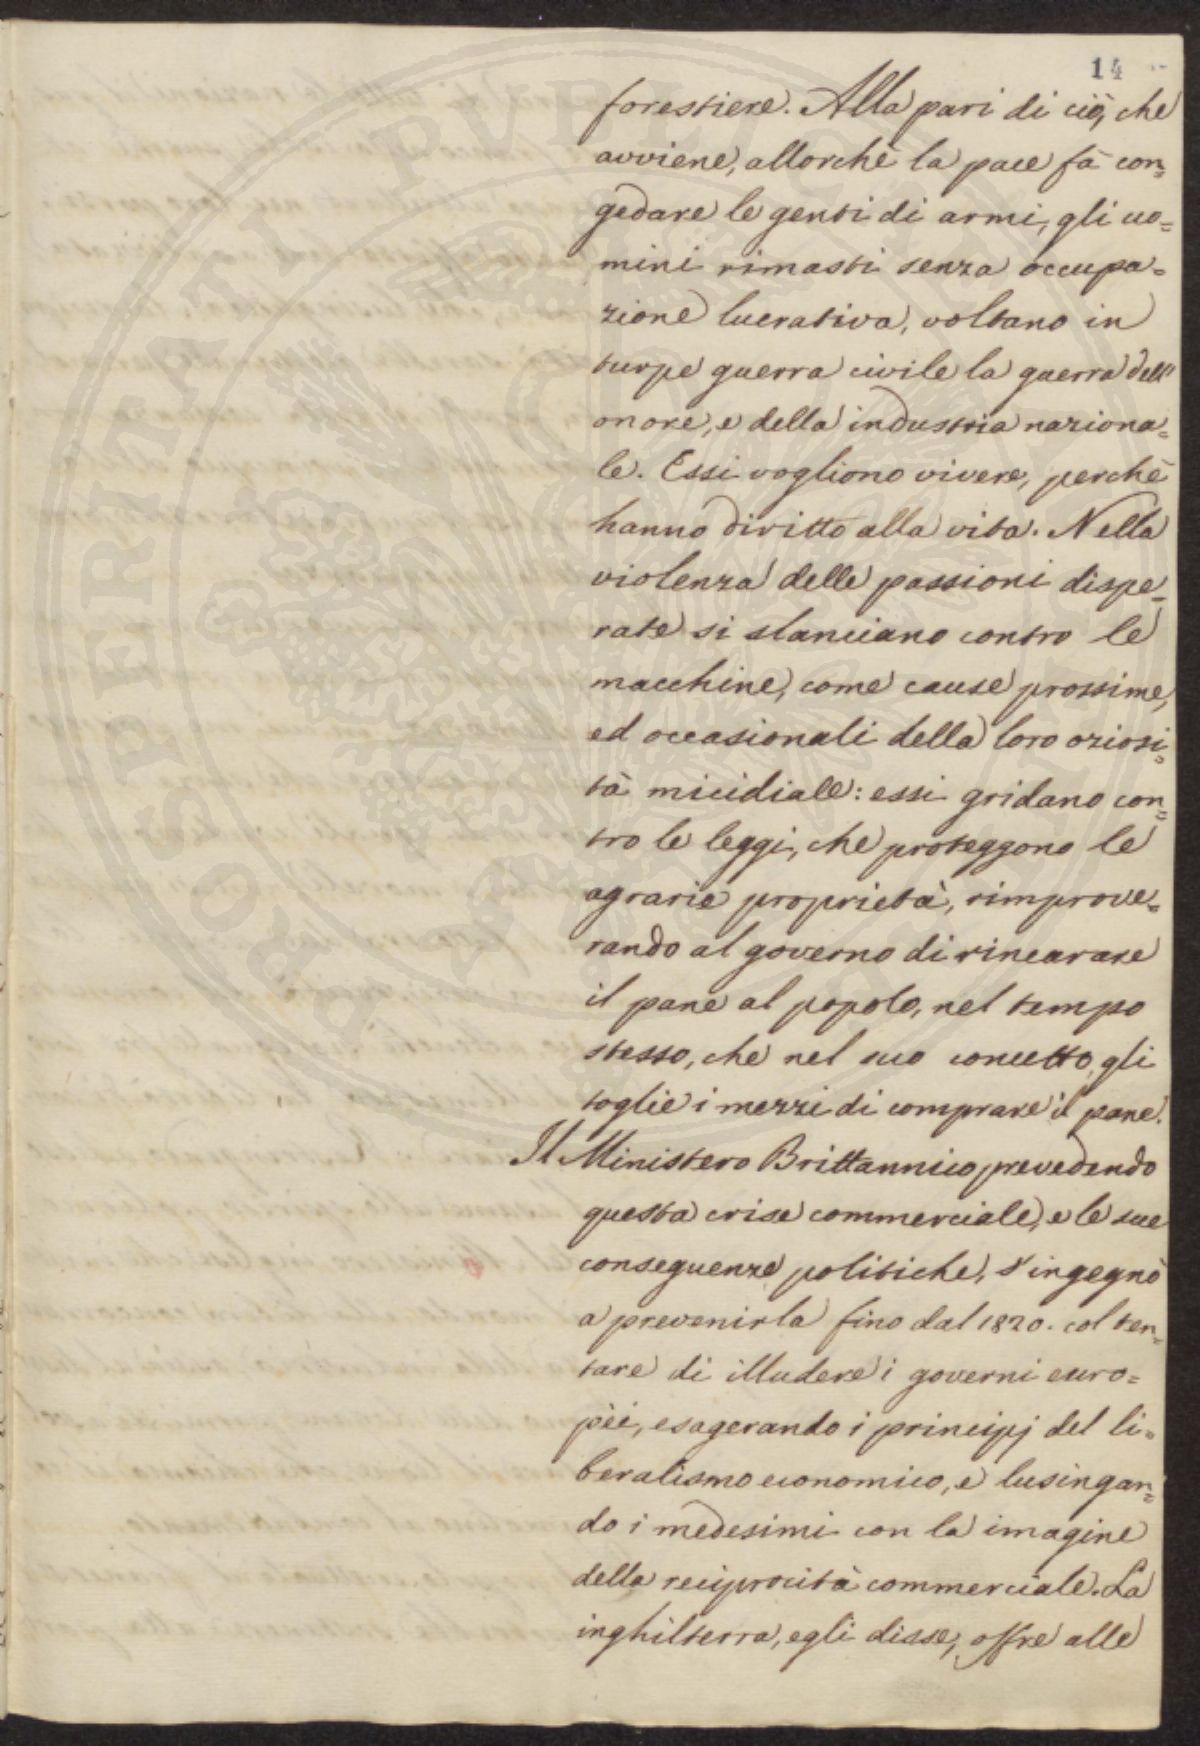 14
forestiere. Alla pari di ciò, che
avviene, allorchè la pace fà con=
gedare le genti di armi, gli uo=
mini rimasti senza occupa=
zione lucrativa, voltano in
turpe guerra civile la guerra dell'
onore, e della industria naziona=
le. Essi vogliono vivere, perchè
hanno diritto alla vita. Nella
violenza delle passioni dispe=
rate si slanciano contro le
macchine, come cause prossime,
ed occasionali della loro oziosi=
tà micidiale: essi gridano con=
tro le leggi, che proteggono le
agrarie proprietà, rimprove=
rando al governo di rincarare
il pane al popolo, nel tempo
stesso, che nel suo concetto, gli
toglie i mezzi di comprare il pane.
Il Ministero Brittannico prevedendo
questa crise commerciale, e le sue
conseguenze politiche, s'ingegnò
a prevenirla fino dal 1820. col ten=
tare di illudere i governi euro=
pèi, esagerando i principj del li=
beralismo economico, e lusingan=
do i medesimi con la imagine
della reciprocità commerciale. La
inghilterra, egli disse, offre alle
PROSPERITATI PVBLICAE